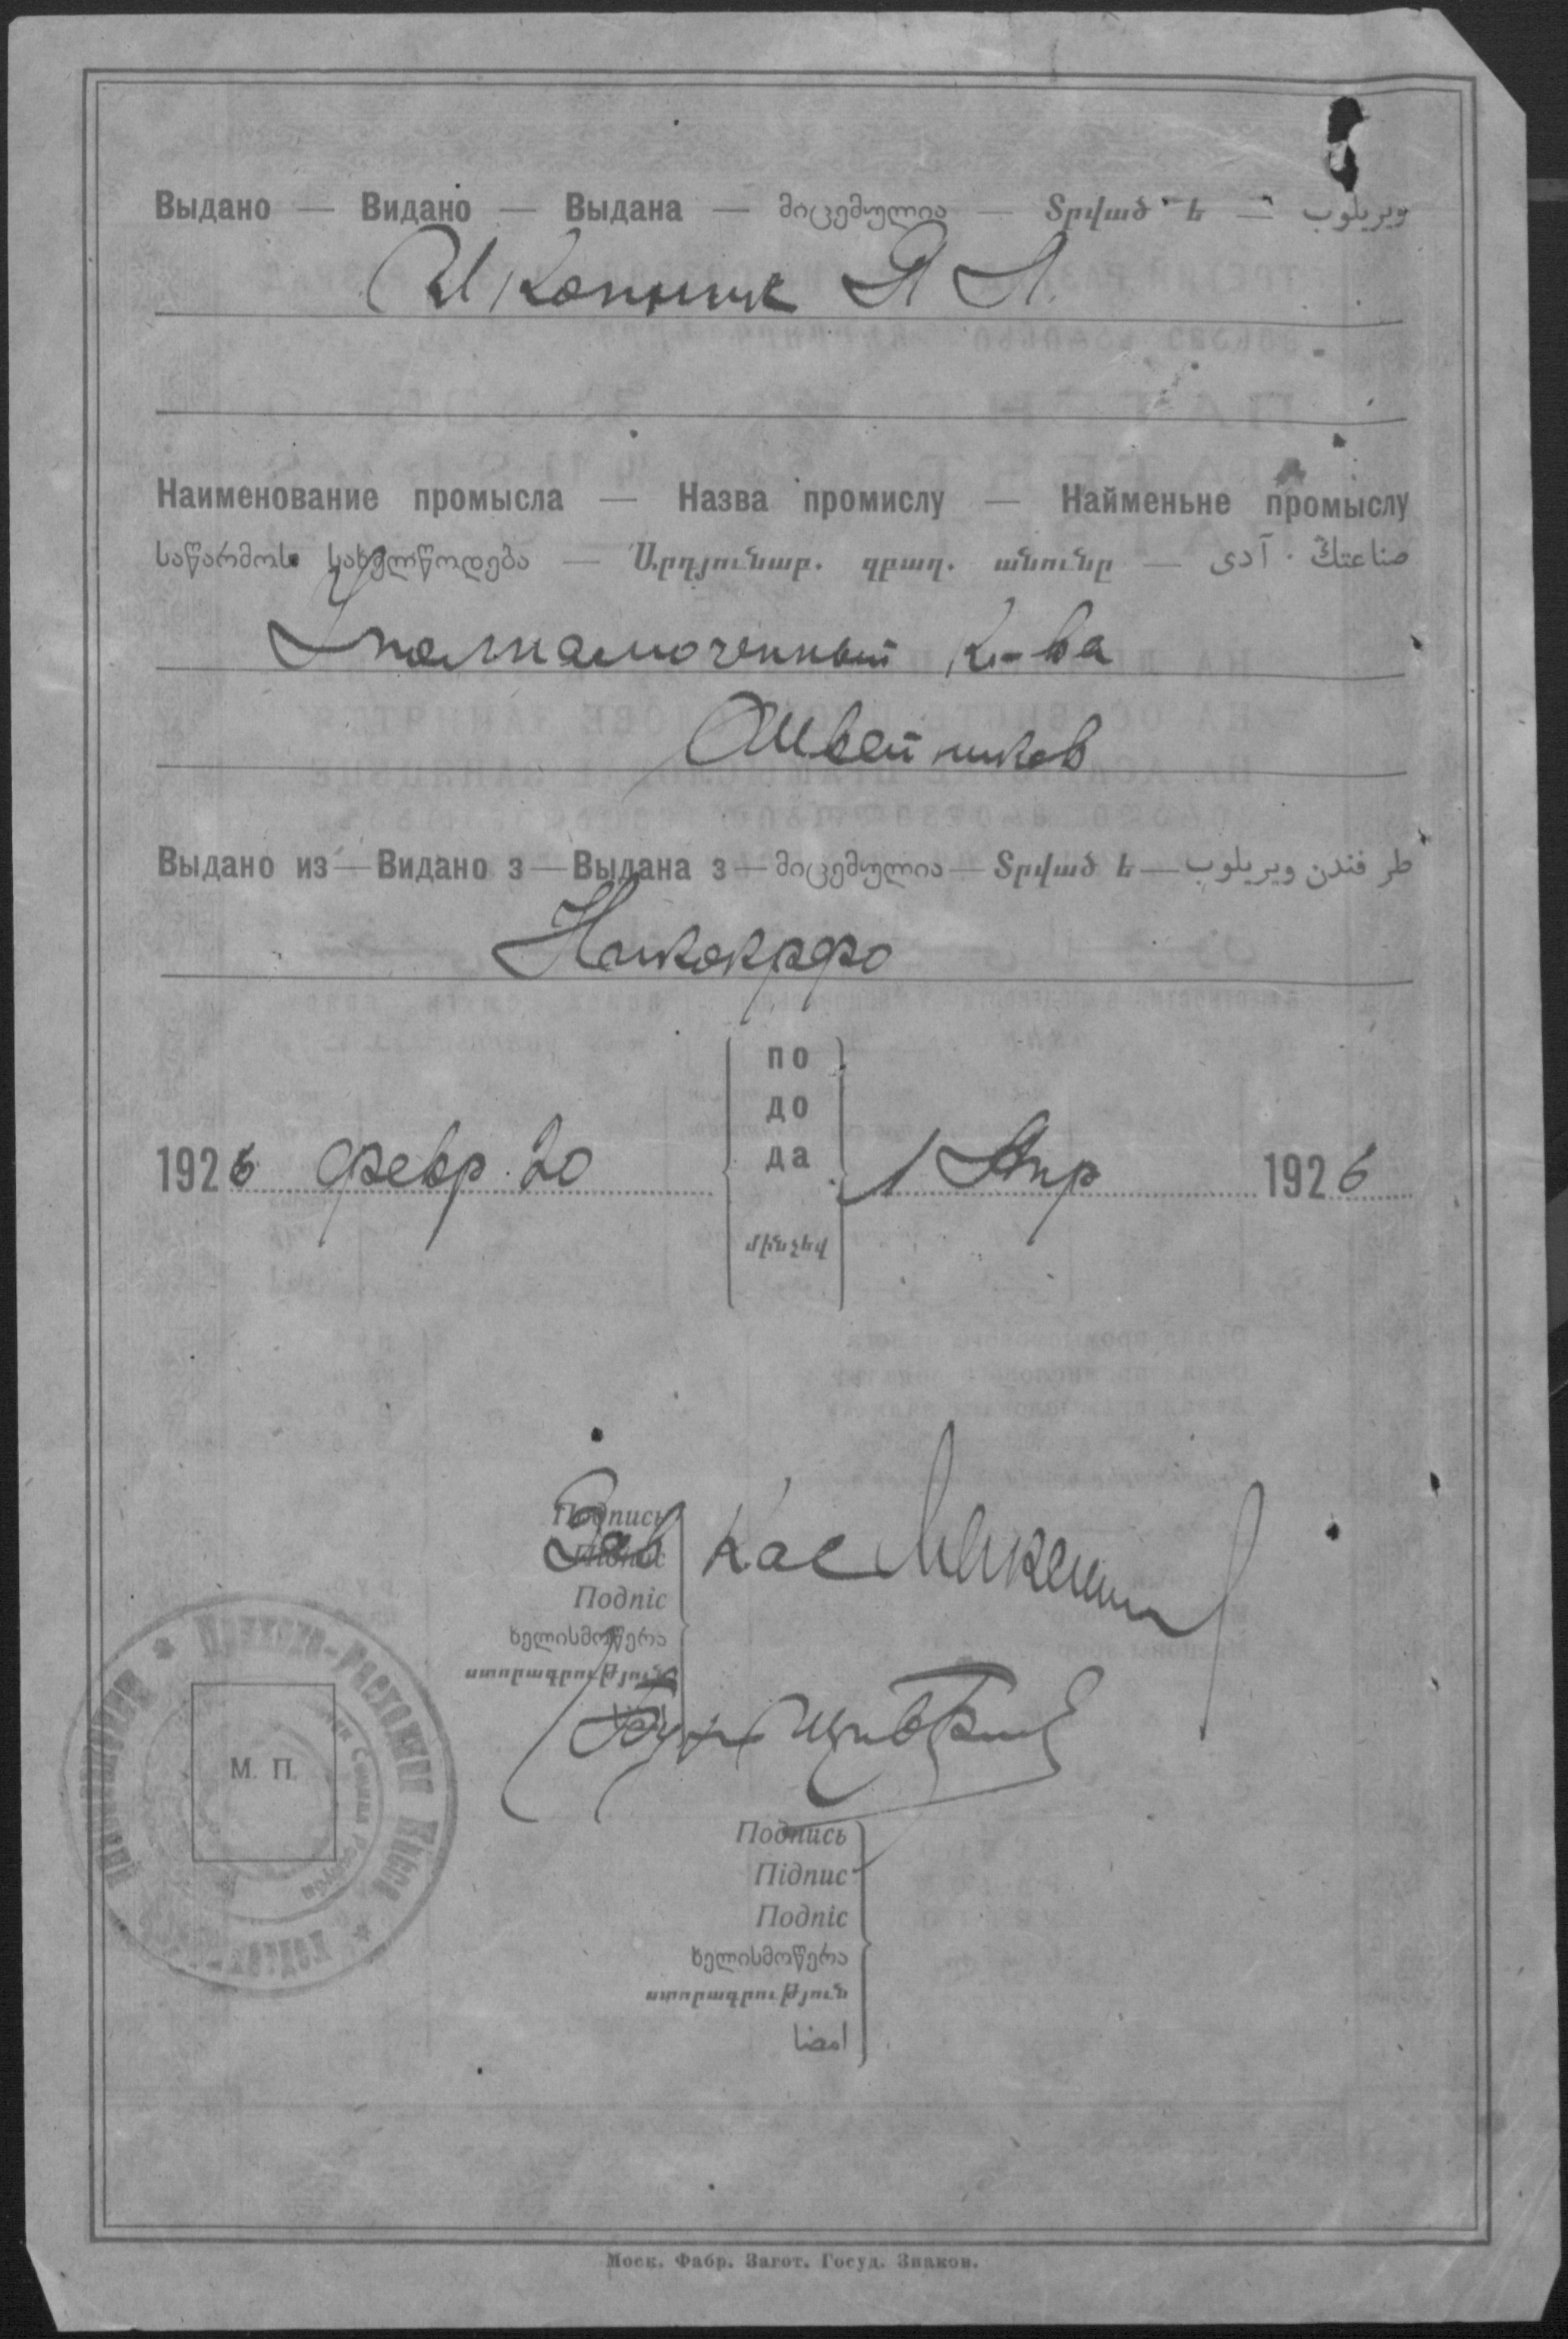 Выдано — Видано — Выдана — მიცემულია — Տրված է — ویریلوب
Наименование промысла — Назва промислу — Найменьне промыслу
საწარმოს სახელწოდება — Արդյունաբ. զբաղ. անունը — صناعتڭ آدی
Уполнамоченный К-ва
Швейников
Выдано из — Видано з — Выдана з — მიცემულია — Տրված է — طرفندن ویریلوب
1926 февр. 20 по 1 Апр 1926
до
да
մինչև
Подпись
Підпис
Подпіс
ხელისმოწერა
ստորագրություն
Зав Кас
Бух
Приходо-расходная Касса
М. П.
Подпись
Підпис
Подпіс
ხელისმოწერა
ստորագրություն
امضا
Моск. Фабр. Загот. Госуд. Знаков.